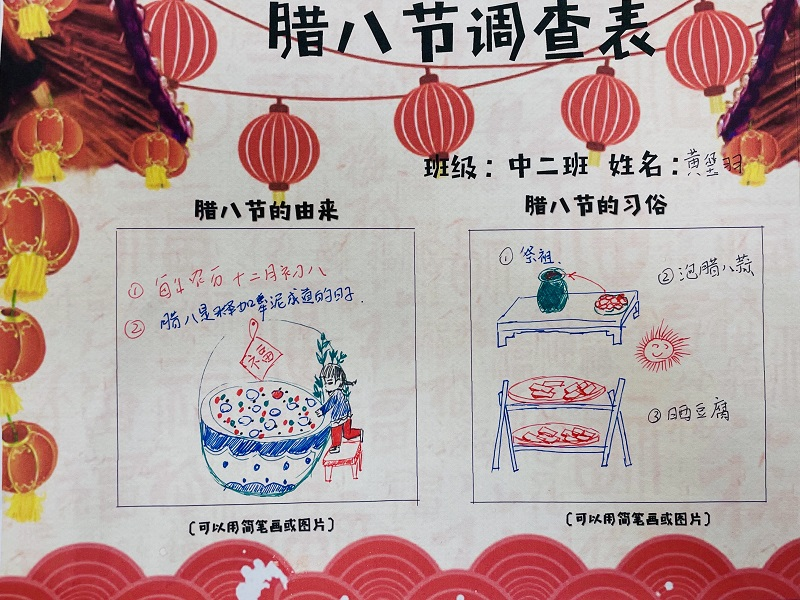 腊八节调查表
班级：中二班 姓名：黄垡羽
腊八节的由来
①每年农历十二月初八
②腊八是释加牟泥成道的日子.
福
(可以用简笔画或图片)
腊八节的习俗
①祭祖.
②泡腊八蒜
③晒豆腐
(可以用简笔画或图片)